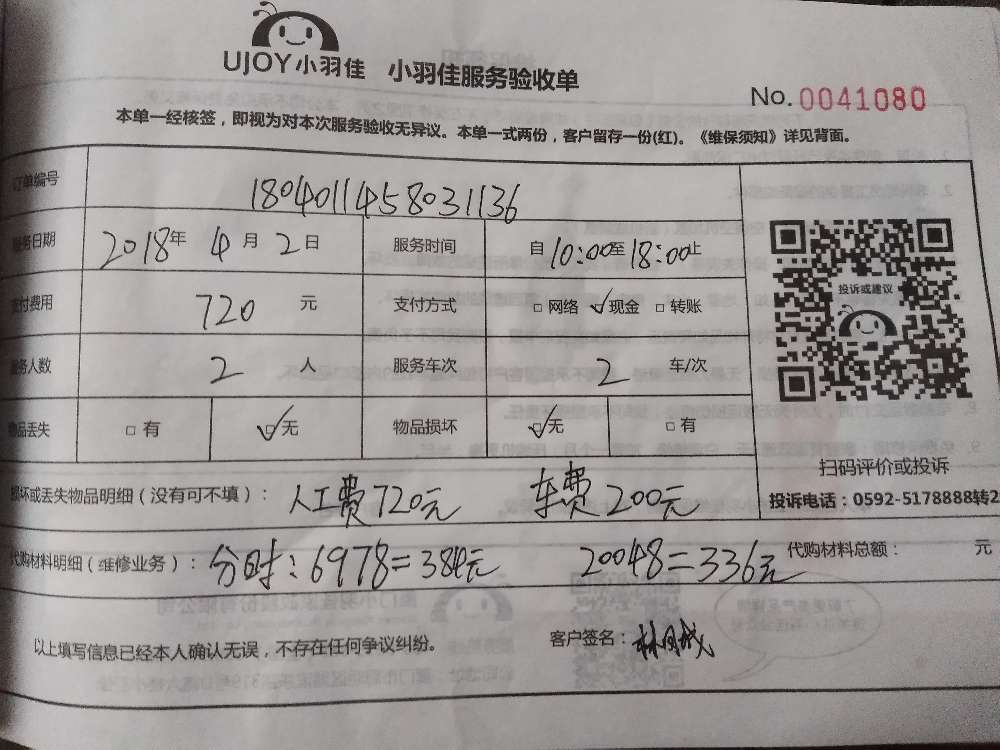 UJOY小羽佳 小羽佳服务验收单
No.0041080
本单一经核签，即视为对本次服务验收无异议。本单一式两份，客户留存一份(红)。《维保须知》详见背面。
订单编号 1804011458031136
服务日期 2018年 4月 2日 服务时间 自10:00至18:00止
投诉或建议
支付费用 720 元 支付方式 □网络 ☑现金 □转账
服务人数 2 人 服务车次 2 车/次
物品丢失 □有 ☑无 物品损坏 ☑无 □有
扫码评价或投诉
损坏或丢失物品明细（没有可不填）： 人工费720元 车费200元
投诉电话：0592-5178888转2
代购材料明细（维修业务）： 分时：6978=384元 20048=336元 代购材料总额： 元
以上填写信息已经本人确认无误，不存在任何争议纠纷。 客户签名：